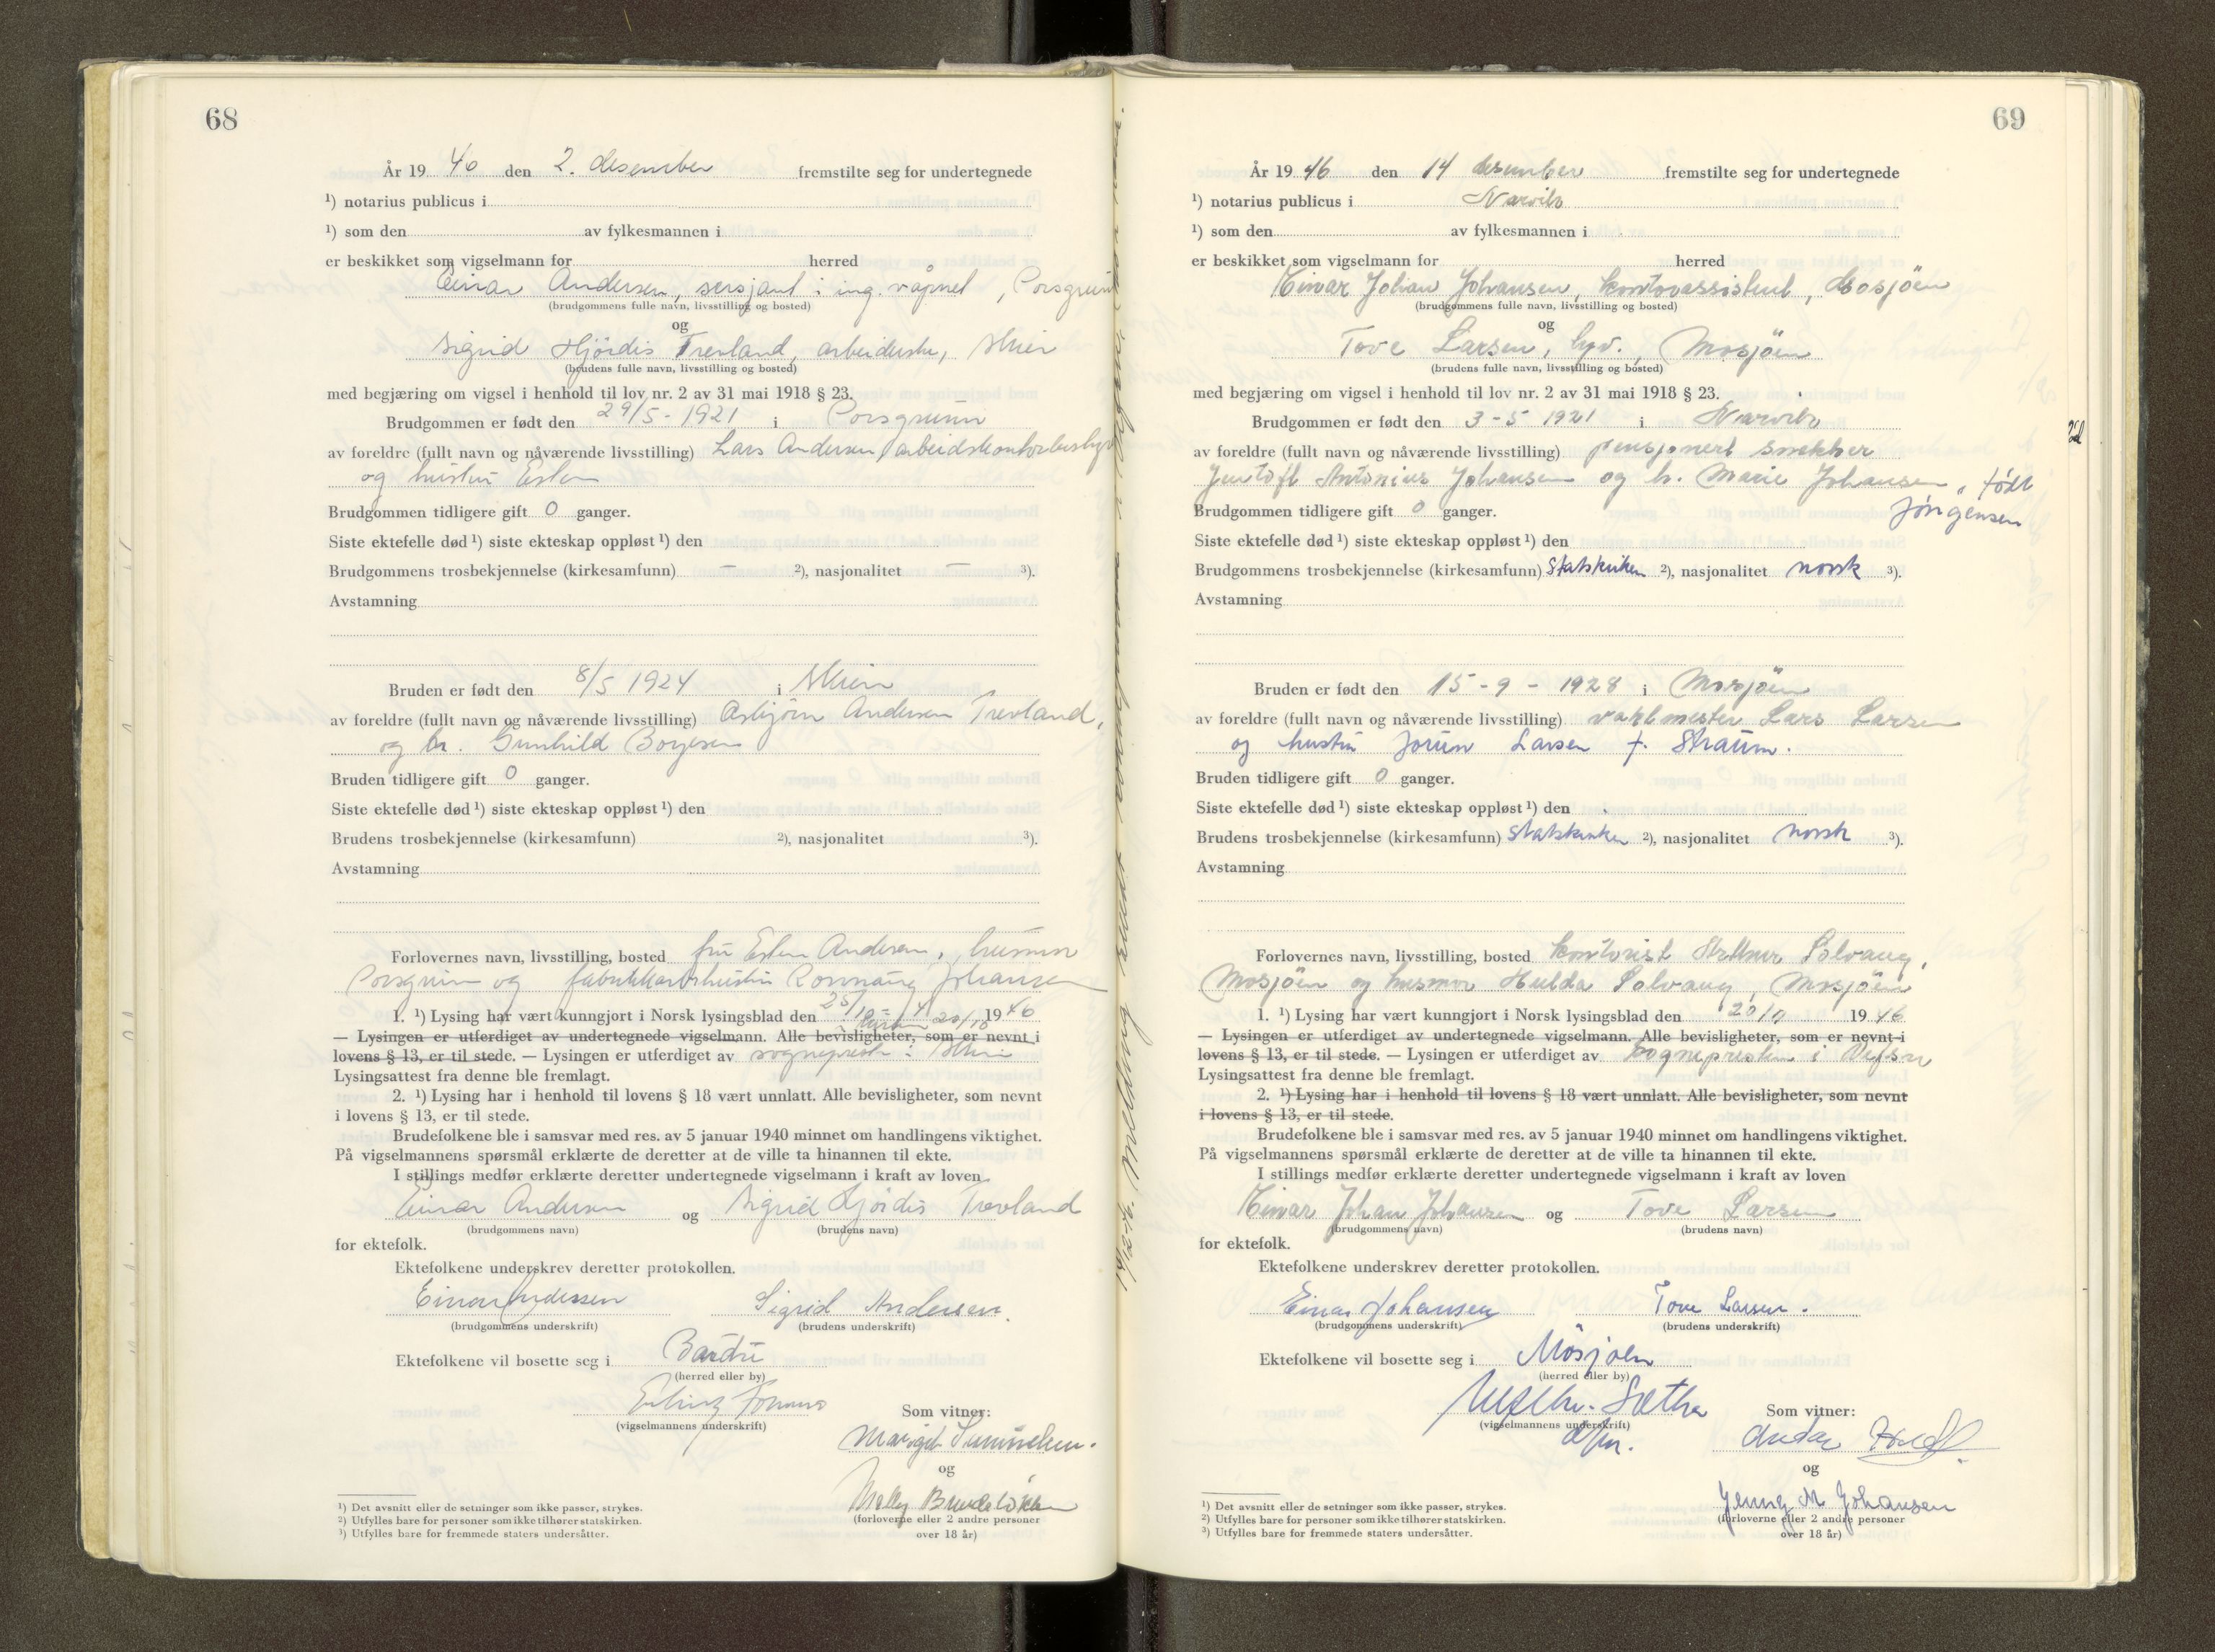 68
År 19 40 den 2. desember fremstilte seg for undertegnede
¹) notarius publicus i
¹) som den av fylkesmannen i
er beskikket som vigselmann for herred
Einar Andersen, sersjant i ing. våpnet, Porsgrunn
(brudgommens fulle navn, livsstilling og bosted)
og
Sigrid Hjördis Trevland, arbeiderske, Skien
(brudens fulle navn, livsstilling og bosted)
med begjæring om vigsel i henhold til lov nr. 2 av 31 mai 1918 § 23.
Brudgommen er født den 29/5 - 1921 i Porsgrunn
av foreldre (fullt navn og nåværende livsstilling) Lars Andersen,
og hustru Ester
Brudgommen tidligere gift 0 ganger.
Siste ektefelle død ¹) siste ekteskap oppløst ¹) den
Brudgommens trosbekjennelse (kirkesamfunn) — ²), nasjonalitet — ³).
Avstamning
Bruden er født den 8/5 1924 i Skien
av foreldre (fullt navn og nåværende livsstilling) Asbjörn Andersen Trevland,
og h. Gunhild Borgesen
Bruden tidligere gift 0 ganger.
Siste ektefelle død ¹) siste ekteskap oppløst ¹) den
Brudens trosbekjennelse (kirkesamfunn) ²), nasjonalitet ³).
Avstamning
Forlovernes navn, livsstilling, bosted fru Ester Andersen, husmor
Porsgrunn og Johansen
1. ¹) Lysing har vært kunngjort i Norsk lysingsblad den 25/10 - 19 46
— Lysingen er utferdiget av undertegnede vigselmann. Alle bevisligheter, som er nevnt i
lovens § 13, er til stede. — Lysingen er utferdiget av sogneprest i Skien
Lysingsattest fra denne ble fremlagt.
2. ¹) Lysing har i henhold til lovens § 18 vært unnlatt. Alle bevisligheter, som nevnt
i lovens § 13, er til stede.
Brudefolkene ble i samsvar med res. av 5 januar 1940 minnet om handlingens viktighet.
På vigselmannens spørsmål erklærte de deretter at de ville ta hinannen til ekte.
I stillings medfør erklærte deretter undertegnede vigselmann i kraft av loven
Einar Andersen og Sigrid Hjördis Trevland
(brudgommens navn) (brudens navn)
for ektefolk.
Ektefolkene underskrev deretter protokollen.
Einar Andersen Sigrid Andersen.
(brudgommens underskrift) (brudens underskrift)
Ektefolkene vil bosette seg i Bardu
(herred eller by)
Erling
(vigselmannens underskrift)
Som vitner:
Margit
og
Molly
(forloverne eller 2 andre personer
over 18 år)
¹) Det avsnitt eller de setninger som ikke passer, strykes.
²) Utfylles bare for personer som ikke tilhører statskirken.
³) Utfylles bare for fremmede staters undersåtter.
69
År 19 46 den 14 desember fremstilte seg for undertegnede
¹) notarius publicus i Narvik
¹) som den av fylkesmannen i
er beskikket som vigselmann for herred
Einar Johan Johansen, kontorassistent, Mosjöen
(brudgommens fulle navn, livsstilling og bosted)
og
Tove Larsen, hjv., Mosjöen
(brudens fulle navn, livsstilling og bosted)
med begjæring om vigsel i henhold til lov nr. 2 av 31 mai 1918 § 23.
Brudgommen er født den 3 - 5 1921 i Narvik
av foreldre (fullt navn og nåværende livsstilling) pensjonert snekker
Jentoft Antonius Johansen og h. Marie Johansen, född
Jörgensen
Brudgommen tidligere gift 0 ganger.
Siste ektefelle død ¹) siste ekteskap oppløst ¹) den
Brudgommens trosbekjennelse (kirkesamfunn) Statskirken ²), nasjonalitet norsk ³).
Avstamning
Bruden er født den 15 - 9 - 1928 i Mosjöen
av foreldre (fullt navn og nåværende livsstilling) vaktmester Lars Larsen
og hustru Jorun Larsen f. Straum.
Bruden tidligere gift 0 ganger.
Siste ektefelle død ¹) siste ekteskap oppløst ¹) den
Brudens trosbekjennelse (kirkesamfunn) Statskirken ²), nasjonalitet norsk ³).
Avstamning
Forlovernes navn, livsstilling, bosted kontorist Solvang,
Mosjöen og husmor Hulda Solvang, Mosjöen
1. ¹) Lysing har vært kunngjort i Norsk lysingsblad den 19 46
— Lysingen er utferdiget av undertegnede vigselmann. Alle bevisligheter, som er nevnt i
lovens § 13, er til stede. — Lysingen er utferdiget av sognepresten i Vefsn
Lysingsattest fra denne ble fremlagt.
2. ¹) Lysing har i henhold til lovens § 18 vært unnlatt. Alle bevisligheter, som nevnt
i lovens § 13, er til stede.
Brudefolkene ble i samsvar med res. av 5 januar 1940 minnet om handlingens viktighet.
På vigselmannens spørsmål erklærte de deretter at de ville ta hinannen til ekte.
I stillings medfør erklærte deretter undertegnede vigselmann i kraft av loven
Einar Johan Johansen og Tove Larsen
(brudgommens navn) (brudens navn)
for ektefolk.
Ektefolkene underskrev deretter protokollen.
Einar Johansen Tove Larsen.
(brudgommens underskrift) (brudens underskrift)
Ektefolkene vil bosette seg i Mosjøen
(herred eller by)
Sæther
(vigselmannens underskrift)
Som vitner:
og
Jenny M Johansen
(forloverne eller 2 andre personer
over 18 år)
¹) Det avsnitt eller de setninger som ikke passer, strykes.
²) Utfylles bare for personer som ikke tilhører statskirken.
³) Utfylles bare for fremmede staters undersåtter.